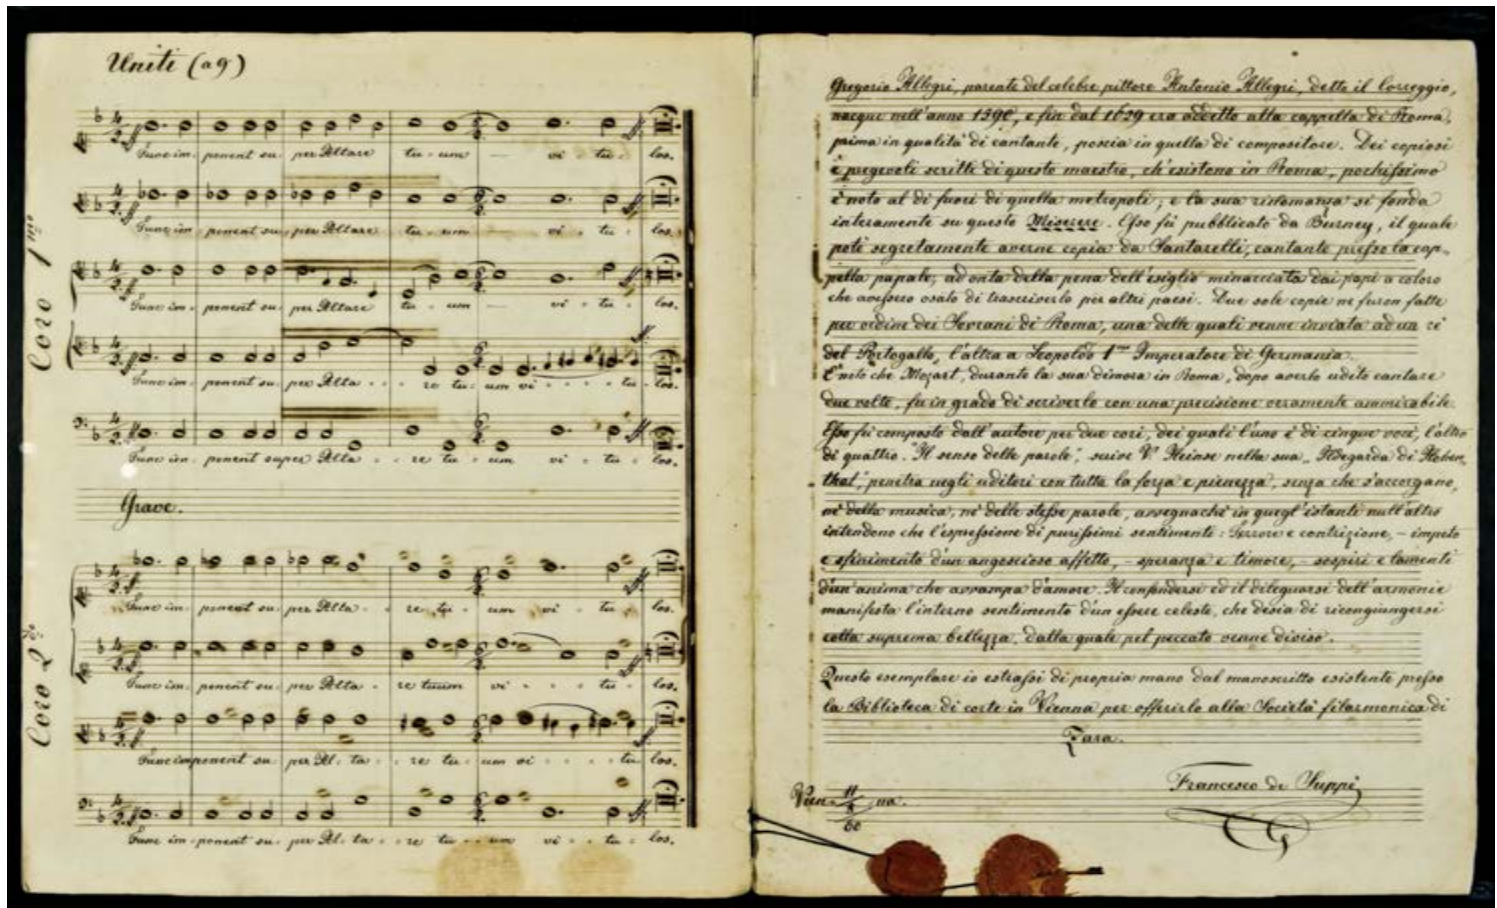 Uniti (a 9)
Coro 1mo
Tunc im - ponent su - per Altare tu - um vi - tu - los.
Tunc im - ponent su - per Altare tu - um vi - tu - los.
Tunc im - ponent su - per Altare tu - um vi - tu - los.
Tunc im - ponent su - per Alta - re tu - um vi - tu - los.
Tunc im - ponent super Alta - re tu - um vi - tu - los.
Grave.
Coro 2do
Tunc im - ponent su - per Alta - re tu - um vi - tu - los.
Tunc im - ponent su - per Alta - re tuum vi - tu - los.
Tunc imponent su - per Al - ta - re tu - um vi - tu - los.
Tunc im - ponent su - per Al - ta - re tu - um vi - tu - los.
Gregorio Allegri, parente del celebre pittore Antonio Allegri, detto il Correggio,
nacque nell'anno 1590, e fin dal 1629 era addetto alla cappella di Roma,
prima in qualità di cantante, poscia in quella di compositore. Dei copiosi
e pregevoli scritti di questo maestro, ch'esistono in Roma, pochissimo
è noto al di fuori di quella metropoli; e la sua rinomanza si fonda
interamente su questo Miserere. Esso fu pubblicato da Burney, il quale
potè segretamente averne copia da Santarelli, cantante presso la cap-
pella papale, ad onta della pena dell'esiglio minacciata dai papi a coloro
che avessero osato di trascriverlo per altri paesi. Due sole copie ne furon fatte
per ordine dei Sovrani di Roma, una delle quali venne inviata ad un re
del Portogallo, l'altra a Leopoldo 1mo Imperatore di Germania.
È noto che Mozart, durante la sua dimora in Roma, dopo averlo udito cantare
due volte, fu in grado di scriverlo con una precisione veramente ammirabile.
Esso fu composto dall'autore per due cori, dei quali l'uno è di cinque voci, l'altro
di quattro. "Il senso delle parole", scrive V. Heinse nella sua "Ildegarda di Hohen-
thal", penetra negli uditori con tutta la forza e pienezza, senza che s'accorgano,
nè della musica, nè delle stesse parole, avvegnachè in quegl'istanti null'altro
intendono che l'espressione di purissimi sentimenti: Terrore e contrizione, - impeto
e sfinimento d'un angoscioso affetto, - speranza e timore, - sospiri e lamenti
d'un'anima che avvampa d'amore. Il confondersi ed il dileguarsi dell'armonie
manifesta l'interno sentimento d'un essere celeste, che desia di ricongiungersi
colla suprema bellezza, dalla quale pel peccato venne diviso.
Questo esemplare io estrassi di propria mano dal manoscritto esistente presso
la Biblioteca di corte in Vienna per offerirlo alla Società filarmonica di
Zara.
Francesco de Suppé
Vien - na.
60